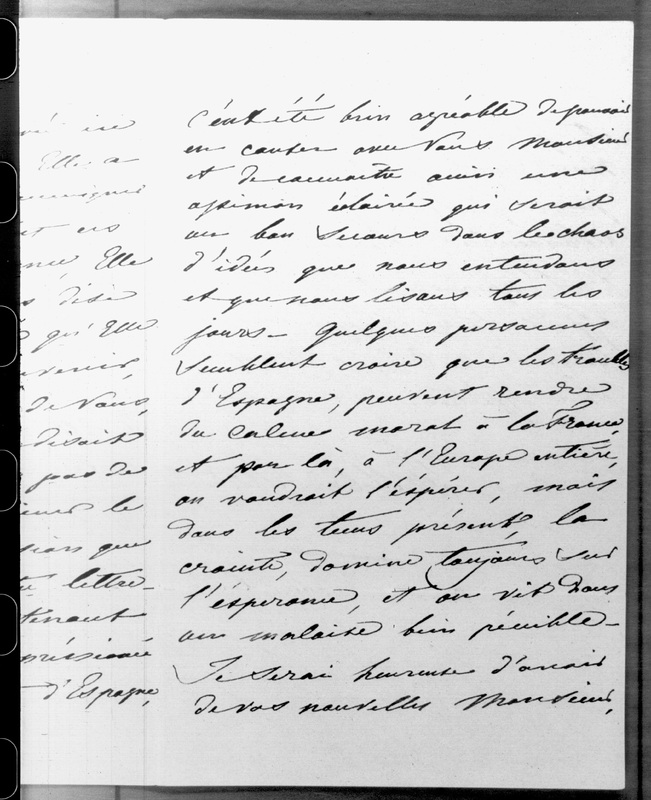 Elle a
nt ces
Elle
s dise
qu'Elle
de Vous,
disait
pas de
le
que
lettre
d'Espagne,
c'eut été bien agréable de pouvoir
en causer avec Vous Monsieur
et de connaitre ainsi une
opinion éclairée qui serait
un bon Secours dans le chaos
d'idées que nous entendons
et que nous lisons tous les
jours_ Quelques personnes
Semblent croire que les troubles
d'Espagne, peuvent rendre
du Calme moral à la France,
et par là, à l'Europe entière,
on voudrait l'éspérer, mais
dans les tems présent, la
crainte, domine toujours Sur
l'ésperance, et on vit dans
un malaise bien pénible_
Je Serai heureuse d'avoir
de vos nouvelles Monsieur,